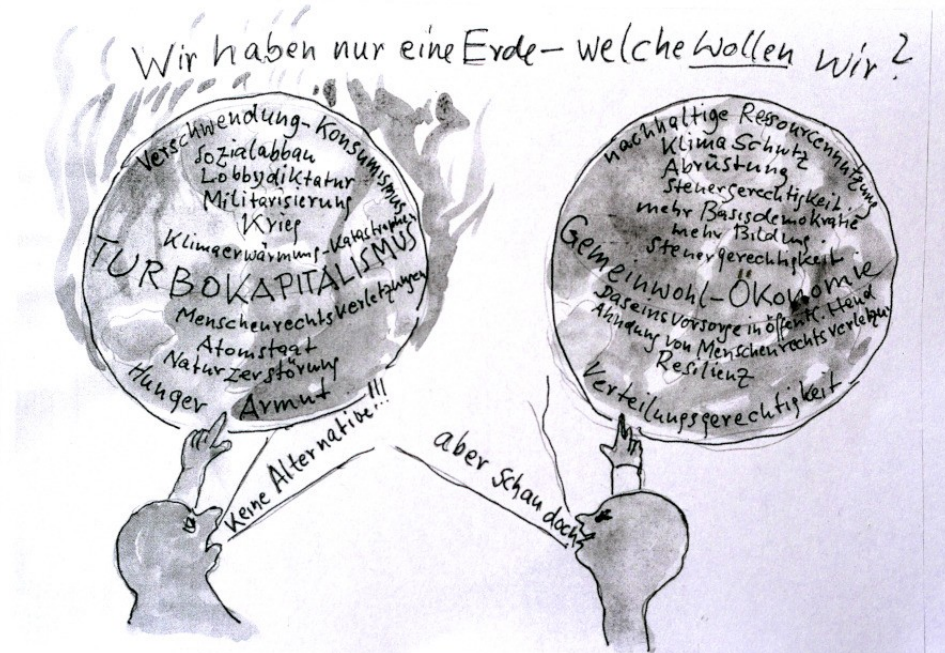 Wir haben nur eine Erde – welche wollen wir?
Verschwendung-Konsumismus
Sozialabbau
Lobbydiktatur
Militarisierung
Krieg
Klimaerwärmung-Katastrophen
TURBOKAPITALISMUS
Menschenrechtsverletzungen
Atomstaat
Naturzerstörung
Hunger
Armut
Keine Alternative!!!
nachhaltige Ressourcennutzung
Klima Schutz
Abrüstung
Steuergerechtigkeit
mehr Basisdemokratie
mehr Bildung
Steuergerechtigkeit
Gemeinwohl-ÖKonomie
Daseinsvorsorge in öffentl. Hand
Ahndung von Menschenrechtsverletzu
Resilienz
Verteilungsgerechtigkeit
aber schau doch